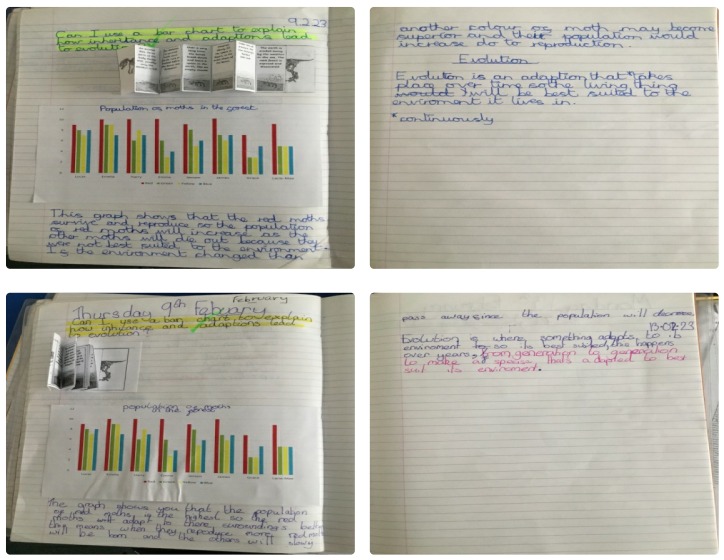 9.2.23
Can I use a bar chart to explain
how inheritance and adaptions lead
to evolution
Population os moths in the forest.
This graph shows that the red moths
survive and reproduce so the population
os red moths will increase as the
other moths will die out because they
were not best suited to the environment.
Is the environment changed then
another colour os moth may become
superior and their population would
increase do to reproduction.
Evolution
Evolution is an adaption that *takes
place over time so the living thing
will be best suited to the
enviroment it lives in.
*continuously
February
Thursday 9th Febuary
Can I use a bar chart to explain
how inhytance and adaptions lead
to evolution?
population os moths
in the forest
The graph shows you that the population
os red moths is the highest so the red
moths will adapt to there surroundings better
this means when they reproduce more red moths
will be born and the others will slowly
pass away since the population will decrease
13-02-23
Evolution is where something adapts to it
enviroment to so is best suited, this happens
over years, from generation to generation
to make a species thats adapted to best
suit its enviroment.